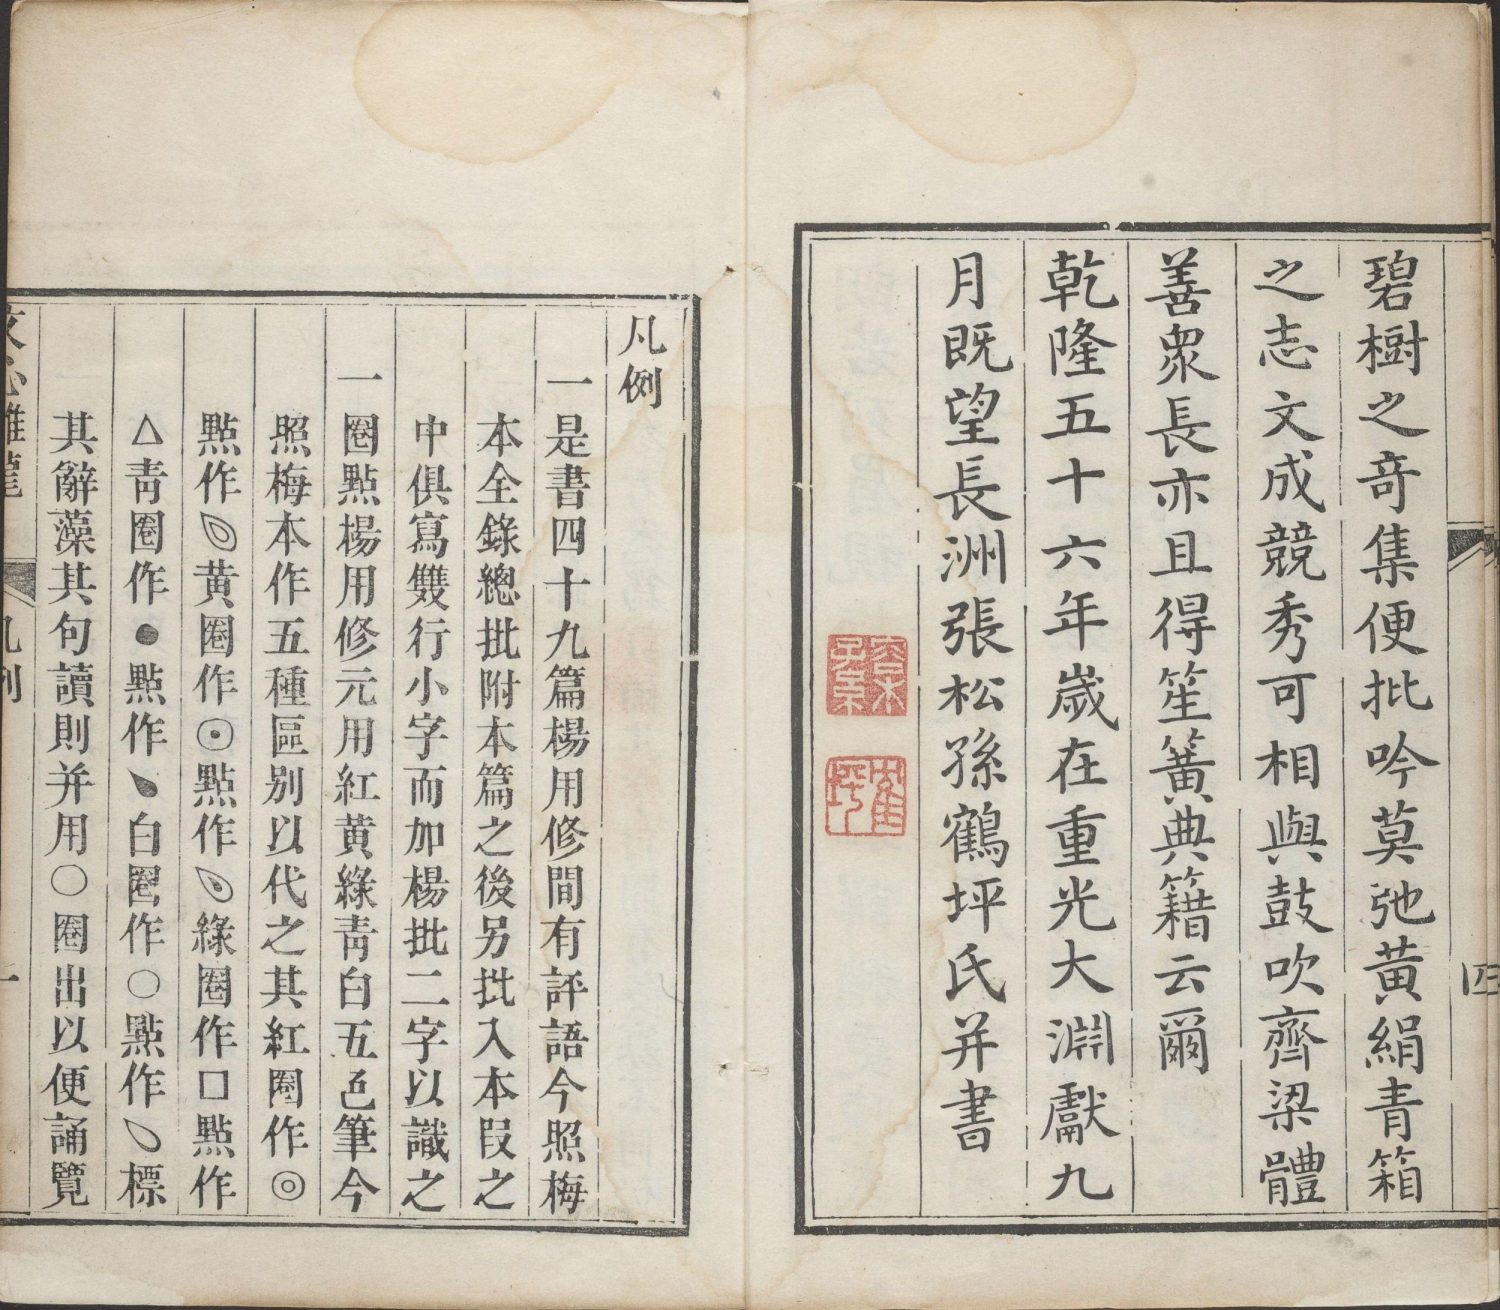 四
碧樹之奇集便批吟莫弛黃絹青箱
之志文成競秀可相與鼓吹齊梁體
善衆長亦且得笙簧典籍云爾
乾隆五十六年歲在重光大淵獻九
月既望長洲張松孫鶴坪氏并書
鶴坪
凡例
一是書四十九篇楊用修間有評語今照梅
本全錄總批附本篇之後另批入本段之
中俱寫雙行小字而加楊批二字以識之
一圈點楊用修元用紅黃綠青白五色筆今
照梅本作五種區別以代之其紅圈作◎
點作黃圈作⊙點作綠圈作□點作
△青圈作●點作白圈作○點作標
其辭藻其句讀則并用○圈出以便誦覽
文心雕龍
凡例
一